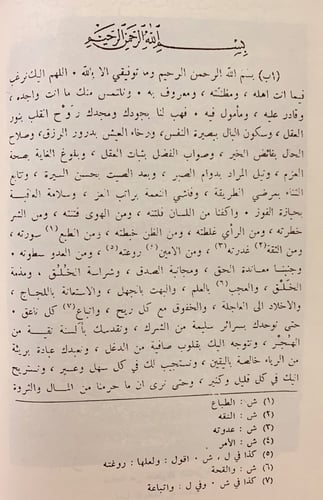 بسم الله الرحمن الرحيم
(١ب) بسم الله الرحمن الرحيم وما توفيقي الا بالله • اللهم اليك نرغب
فيما انت اهله ، ومظنته ، ومعروف به • ونلتمس منك ما انت واجده ،
وقادر عليه ، ومأمول فيه • فهب لنا بجودك ومجدك روح القلب بنور
العقل ، وسكون البال ببصيرة النفس، ورخاء العيش بدرور الرزق، وصلاح
الحال بفائض الخير ، وصواب الفضل بثبات العقل ، وبلوغ الغاية بصحة
العزم ، ونيل المراد بدوام الصبر ، وبعد الصيت بحسن السيرة ، وتتابع
الثناء بمرضي الطريقة ، وفاشي النعمة براتب العز ، وسلامة العاقبة
بحيازة الفوز • واكفنا من اللسان فلتته ، ومن الهوى فتنته ، ومن الشر
خطرته ، ومن الرأي غلطته ، ومن الظن خبطته ، ومن الطبع (١) سورته ،
ومن الثقة (٢) غدرته (٣) ، ومن الامين (٤) روعته (٥) ، ومن العدو سطوته •
وجنبنا معاندة الحق ، ومجانبة الصدق ، وشراسة الخُلُق ، ومذمة
الخَلْق ، والعجب (٦) بالعلم ، والبهت بالجهل ، والاستعانة باللجاج ،
والاخلاد الى العاجلة ، والخفوق مع كل ريح ، واتباع (٧) كل ناعق •
حتى نوحدك بسرائر سليمة من الشرك ، ونقدسك بألسنة نقية من
الهُجْر ، ونتوجه اليك بقلوب صافية من الدغل ، ونعبدك عبادة بريئة
من الرياء خالصة باليقين ، ونستجيب لك في كل سهل وعسير ، ونستريح
اليك في كل قليل وكثير ، وحتى نرى ان ما حرمنا من المال والثروة
(١) ش : الطباع
(٢) ش : النقه
(٣) ش : عدوته
(٤) ش : الأمر
(٥) كذا في ل ، ش • اقول : ولعلها : روغته
(٦) ش : والقحة
(٧) كذا في ش • وفي ل : واتباعة